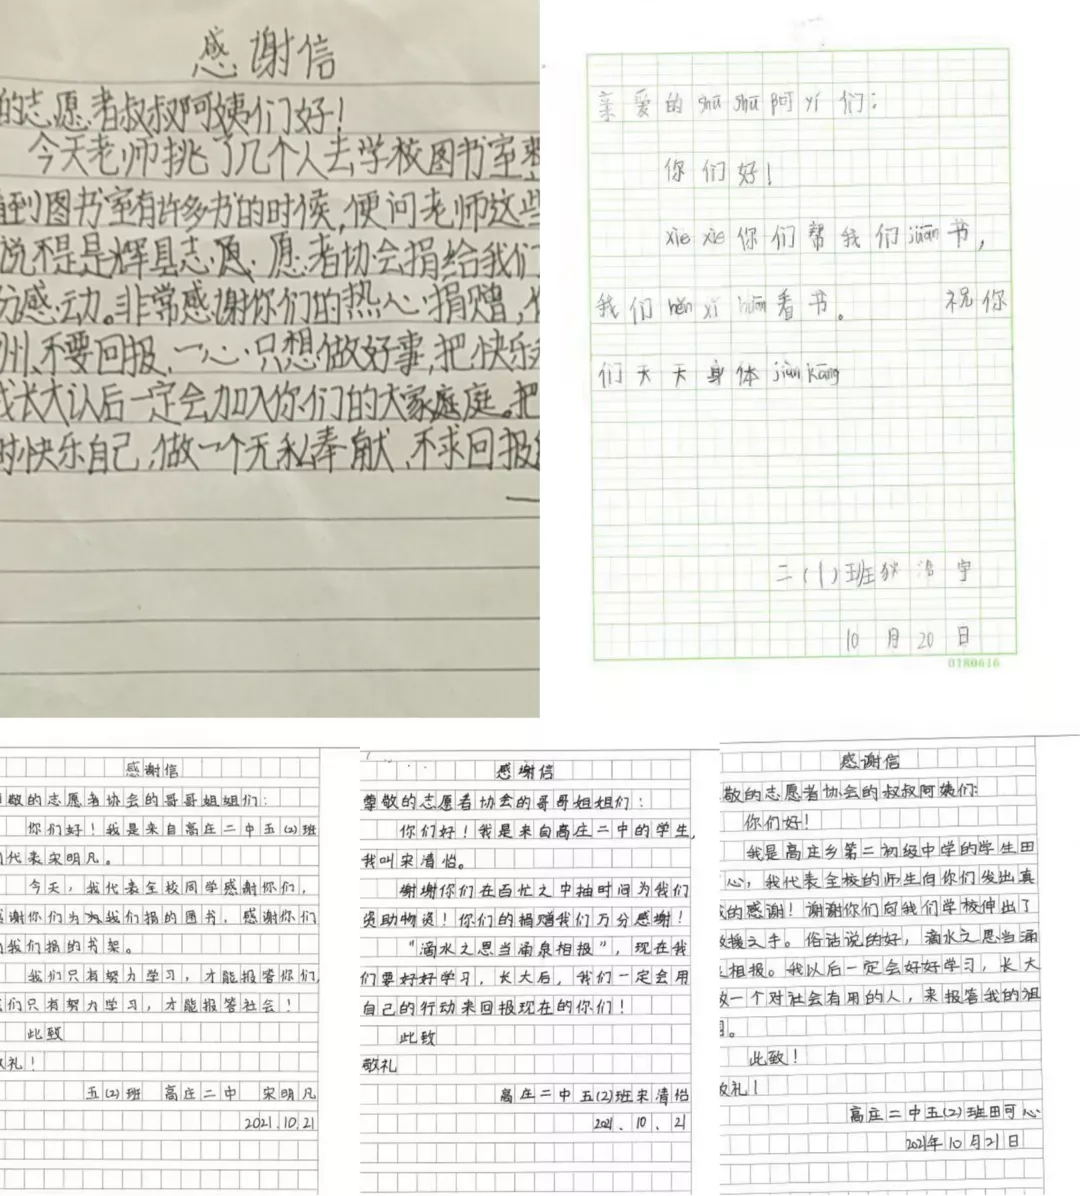 感谢信
的志愿者叔叔阿姨们好！
今天老师挑了几个人去学校图书室整
到图书室有许多书的时候，便问老师这些
说不是是辉县志愿愿者协会捐给我们
分感动。非常感谢你们的热心捐赠，
州、不要回报、一心只想做好事，把快乐
长大认后一定会加入你们的大家庭庭。把
时快乐自己，做一个无私奉献、不求回报
亲爱的shū shū阿yí们：
你们好！
xiè xiè你们帮我们juān书，
我们hěn xǐ huān看书。 祝你
们天天身体jiàn kāng
二(1)班狄浩宇
10月20日
0180616
感谢信
敬的志愿者协会的哥哥姐姐们：
你们好！我是来自高庄二中五(2)班
代表宋明凡。
今天，我代表全校同学感谢你们，
感谢你们为为我们捐的图书，感谢你们
我们捐的书架。
我们只有努力学习，才能报答你们，
们只有努力学习，才能报答社会！
此致
礼！
五(2)班 高庄二中 宋明凡
2021.10.21
感谢信
尊敬的志愿者协会的哥哥姐姐们：
你们好！我是来自高庄二中的学生，
我叫宋清怡。
谢谢你们在百忙之中抽时间为我们
资助物资！你们的捐赠我们万分感谢！
“滴水之恩当涌泉相报”，现在我
们要好好学习，长大后，我们一定会用
自己的行动来回报现在的你们！
此致
敬礼
高庄二中五(2)班宋清怡
2021、10、21
感谢信
敬的志愿者协会的叔叔阿姨们：
你们好！
我是高庄乡第二初级中学的学生田
心，我代表全校的师生向你们发出真
的感谢！谢谢你们向我们学校伸出了
援之手。俗话说的好，滴水之恩当涌
相报。我以后一定会好好学习，长大
做一个对社会有用的人，来报答我的祖
国。
此致！
敬礼！
高庄二中五(2)班田可心
2021年10月21日